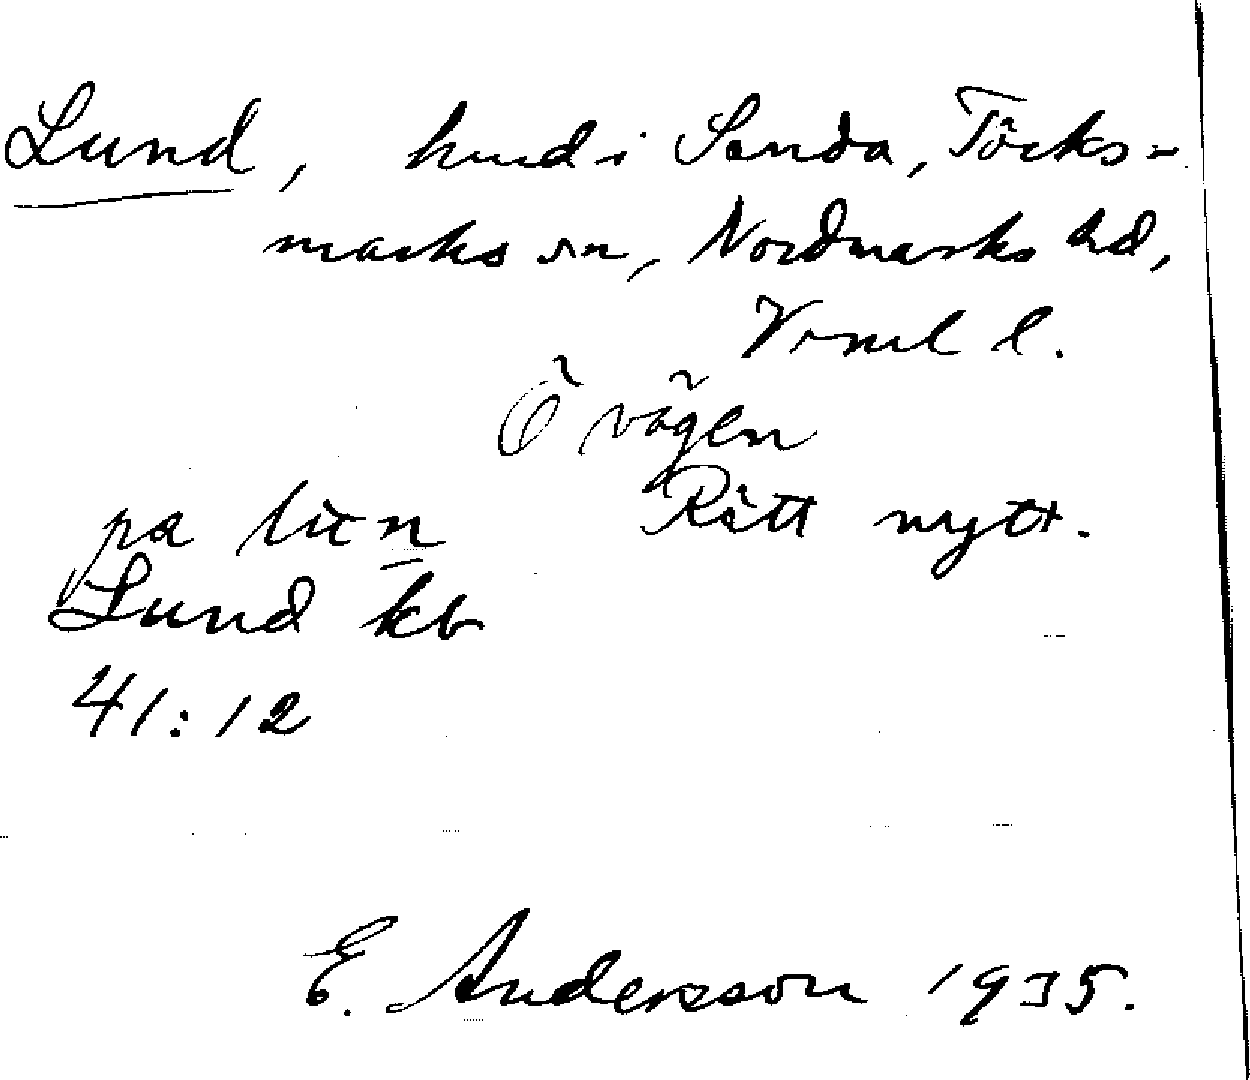 Lund, hmd i Sanda, Töcks-
marks sn, Nordmarks hd,
Vrml l.
Ö vägen
Rätt nytt.
på lùn
Lund kb
41:12
E. Andersson 1935.